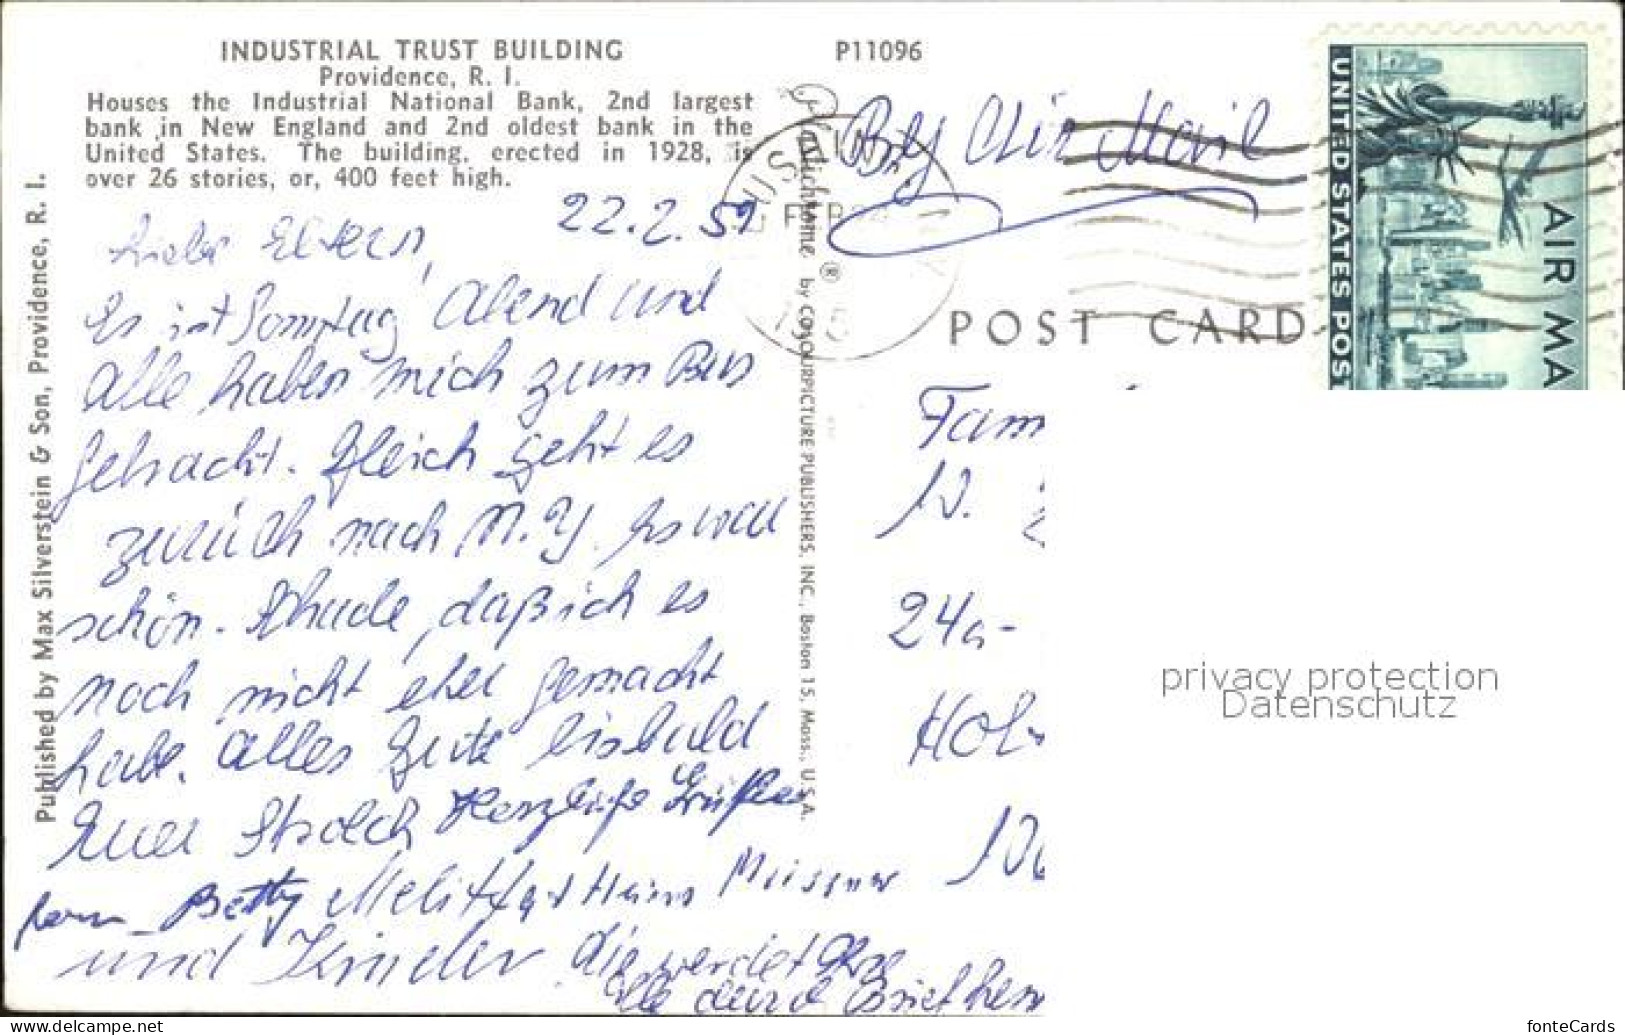 INDUSTRIAL TRUST BUILDING
Providence, R. I.
Houses the Industrial National Bank, 2nd largest
bank in New England and 2nd oldest bank in the
United States. The building, erected in 1928, is
over 26 stories, or, 400 feet high.
P11096
Published by Max Silverstein & Son, Providence, R. I.
by COLOURPICTURE PUBLISHERS, INC., Boston 15, Mass., U.S.A.
By Air Mail
POST CARD
UNITED STATES POST
AIR MA
22.2.59
Liebe Eltern,
Es ist Sonntag Abend und
alle haben mich zum Bus
gebracht. Gleich geht es
zurück nach N.Y. Es war
schön. Schade, daß ich es
noch nicht eher gemacht
habe. Alles Gute bis bald
Euer Strolch Herzliche Grüße
Betty Heins Meissner
und Kinder die werdet Ihr
alle durch
Fam
24a-
privacy protection
Datenschutz
www.delcampe.net
fonteCards